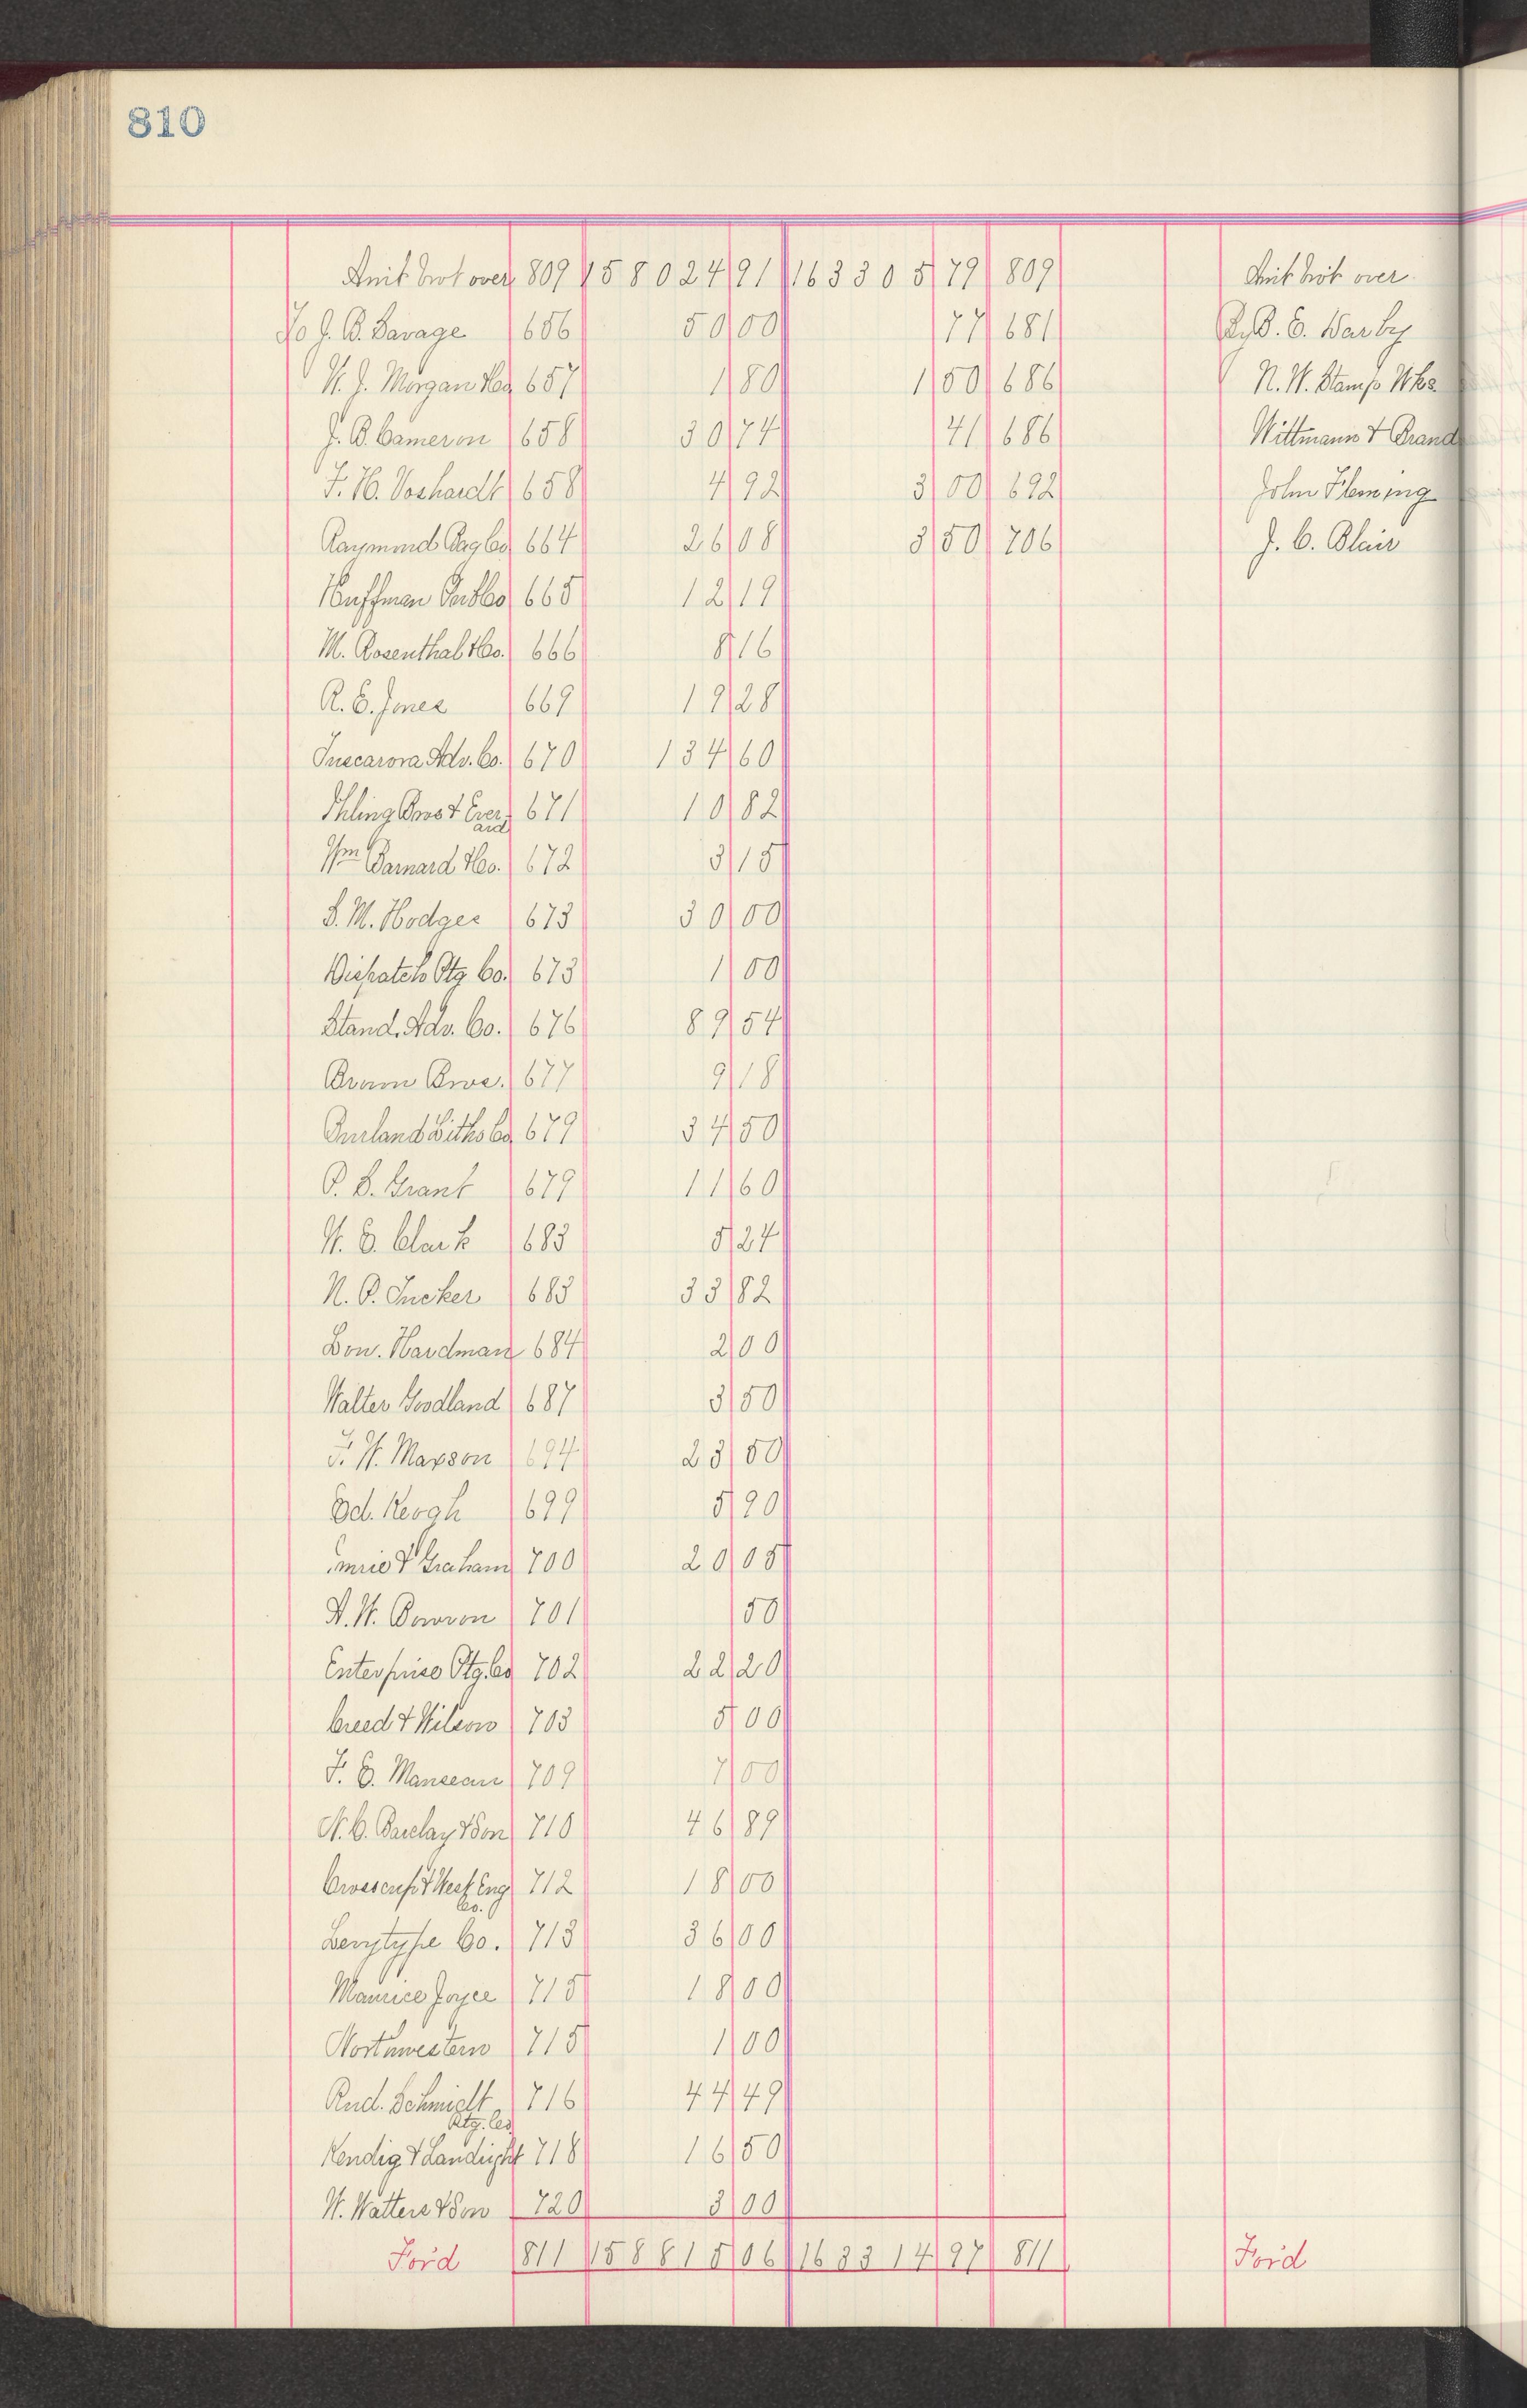 810
Amt brot over 809 158024 91 163305 79 809 Amt brot over
To J. B. Savage 656 50 00 77 681 By D. E. Darby
W. J. Morgan &Co 657 1 80 1 50 686 N. W. Stamp Wks
J. B. Cameron 658 30 74 41 686 Wittmann & Brand
F. H. Voshardt 658 4 92 3 00 692 John Fleming
Raymond Bag Co 664 26 08 3 50 706 J. C. Blair
Huffman Pub Co 665 12 19
M. Rosenthal &Co. 666 8 16
R. E. Jones 669 19 28
Tuscarora Adv. Co. 670 134 60
Ihling Bros & Ever 671 10 82
ard
Wm Barnard &Co. 672 3 15
S. M. Hodges 673 30 00
Dispatch Ptg Co. 673 1 00
Stand. Adv. Co. 676 89 54
Bram Bros. 677 9 18
Courland Litho Co 679 34 50
P. S. Grant 679 11 60
W. E. Clark 683 5 24
N. P. Tucker 683 33 82
Lon. Hardman 684 2 00
Walter Goodland 687 3 50
F. W. Maxson 694 23 50
Ed. Keogh 699 5 90
Imrie & Graham 700 20 05
A. W. Bowron 701 50
Enterprise Ptg. Co 702 22 20
Creed & Wilson 703 5 00
F. E. Manseau 709 7 00
N. C. Barclay & Son 710 46 89
Crosscup & West Eng 712 18 00
Co.
Levytype Co. 713 36 00
Maurice Joyce 715 18 00
Northwestern 715 1 00
Rud. Schmidt 716 44 49
Ptg. Co
Kendig & Landright 718 16 50
W. Watters & Son 720 3 00
For'd 811 158815 06 163314 97 811 For'd